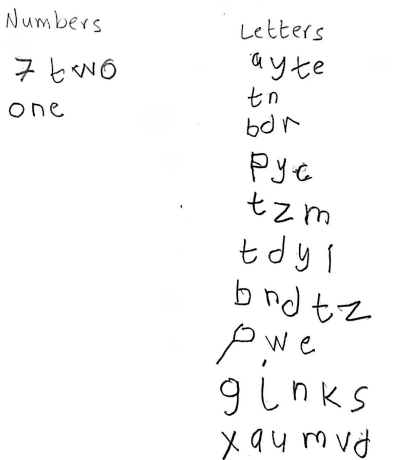 Numbers
7 two
one
Letters
ayte
tn
bdr
pyc
tzm
tdyl
bndtz
pwe
ginks
xaumvd